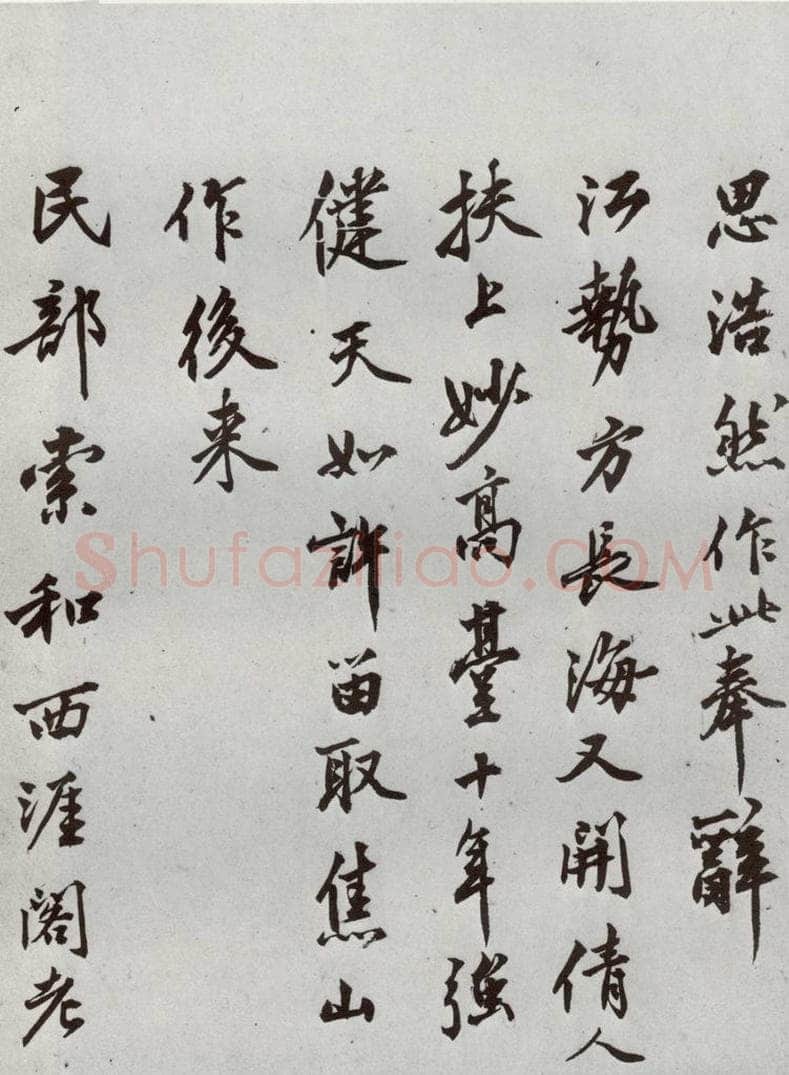 思浩然作此奉辭
江勢方長海又開倩人
扶上妙高臺十年強
健天如許留取焦山
作後来
民部索和西涯閣老
Shufaziliao.COM